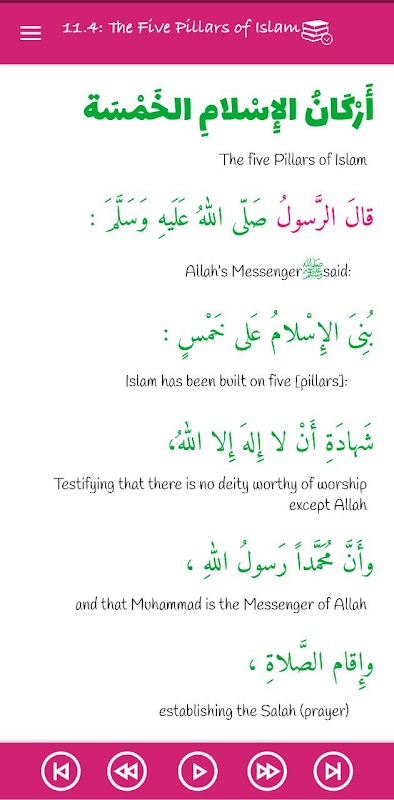 11.4: The Five Pillars of Islam
أَرْكَانُ الإِسْلامِ الخَمْسَة
The five Pillars of Islam
قالَ الرَّسولُ صَلّى اللهُ عَلَيهِ وَسَلَّمَ :
Allah's Messenger ﷺ said:
بُنِىَ الإِسْلامُ عَلى خَمْسٍ :
Islam has been built on five [pillars]:
شَهادَةِ أَنْ لا إِلهَ إِلا اللهُ،
Testifying that there is no deity worthy of worship
except Allah
وأَنَّ مُحَمَّداً رَسولُ اللهِ ،
and that Muhammad is the Messenger of Allah
وإِقام الصَّلاةِ ،
establishing the Salah (prayer)